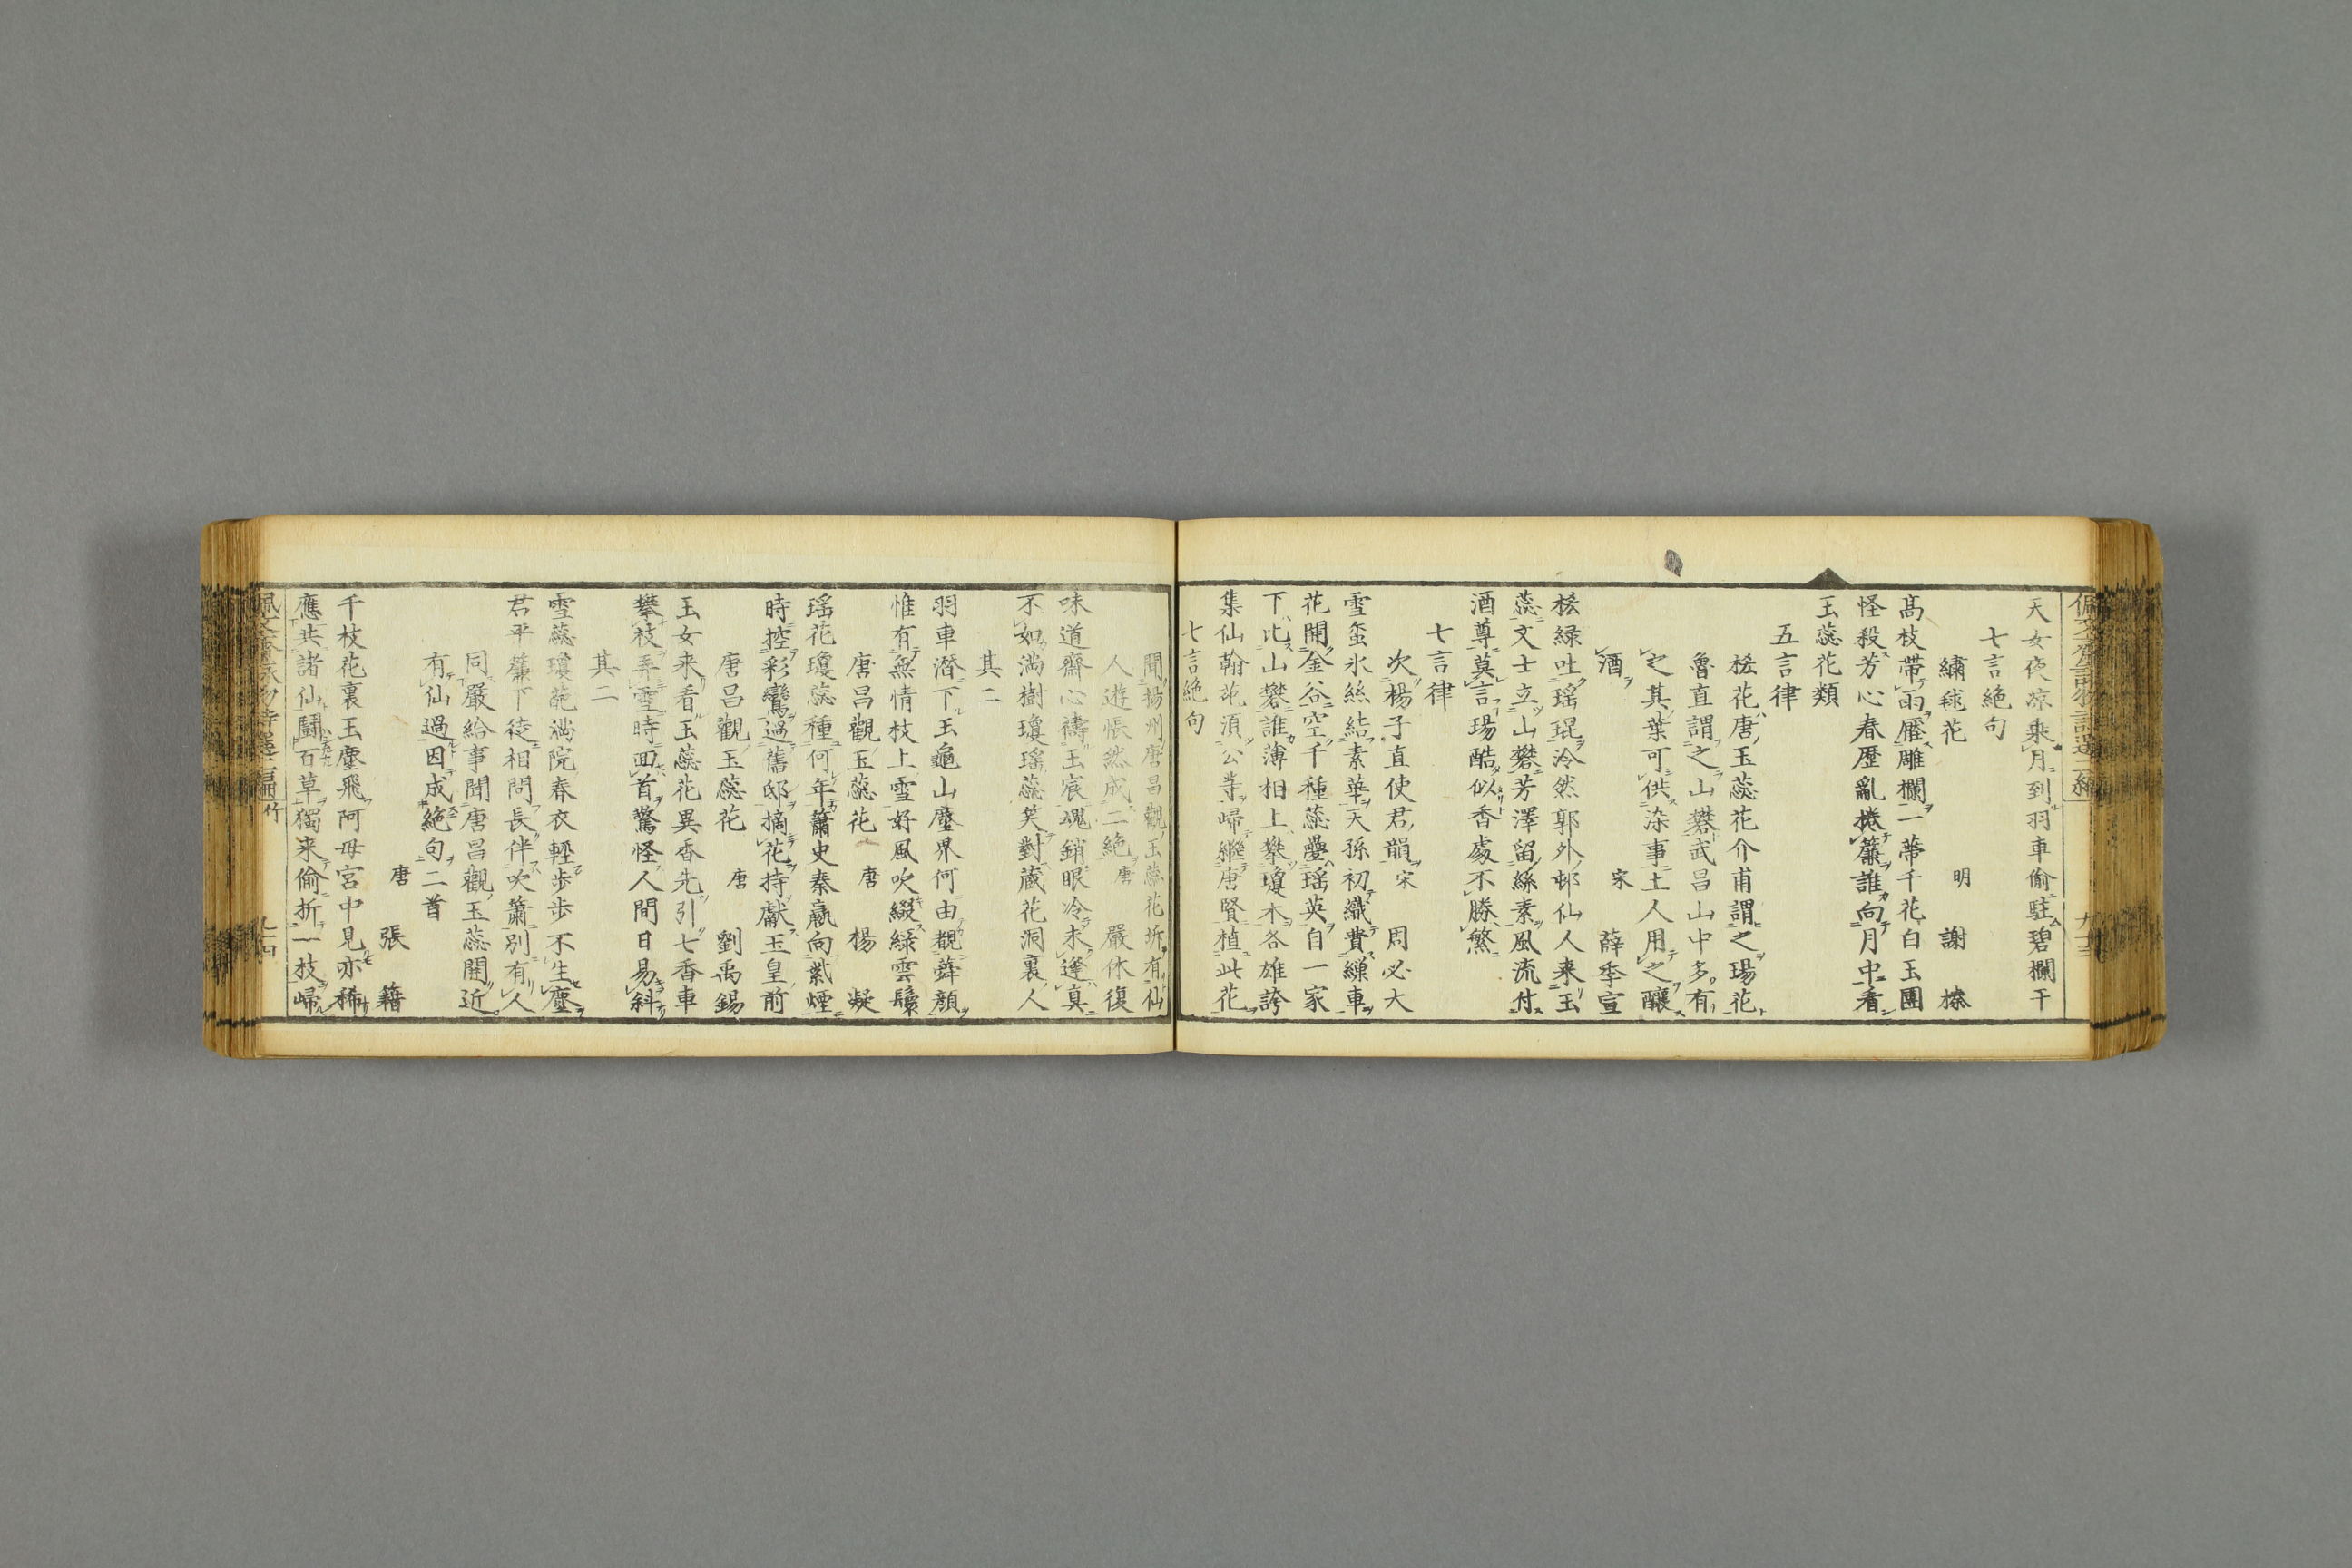 天女夜凉乘月到羽車偷駐碧欄干
七言絶句
繡毬花 明 謝榛
髙枝帶雨壓雕欄一蔕千花白玉團
怪殺芳心春歴亂捲簾誰向月中看
玉蕊花類
五言律
桜花唐玉蕊花介甫謂之瑒花
魯直謂之山礬武昌山中多有
之其葉可供染事土人用之釀
酒 宋 薛季宣
桜緑吐瑶琨泠然郭外邨仙人来玉
蕊文士立山礬芳澤留絲素風流付
酒尊莫言瑒酷似香處不勝繁
七言律
次楊子直使君韻 宋 周必大
雪蚕氷絲結素華天孫初織費繅車
花開金谷空千種蕊疊瑶英自一家
下比山礬誰薄相上攀瓊木各雄誇
集仙翰苑湏公等歸繼唐賢植此花
七言絶句
聞揚州唐昌觀玉蕊花坼有仙
人遊悵然成二絶 唐 嚴休復
味道齋心禱玉宸魂銷眼冷未逢真
不如滿樹瓊瑶蕊笑對蔵花洞裏人
其二
羽車潜下玉龜山塵界何由覩蕣顔
惟有無情枝上雪好風吹綴緑雲鬟
唐昌觀玉蕊花 唐 楊凝
瑶花瓊蕊種何年蕭史秦嬴向紫煙
時控彩鸞過舊邸摘花持獻玉皇前
唐昌觀玉蕊花 唐 劉禹錫
玉女来看玉蕊花異香先引七香車
攀枝弄雪時囬首驚怪人間日易斜
其二
雪蕊瓊葩滿院春衣輕歩歩不生塵
君平簾下徒相問長伴吹簫別有人
同嚴給事聞唐昌觀玉蕊開近
有仙過因成絶句二首
唐 張籍
千枝花裏玉塵飛阿母宮中見亦稀
應共諸仙鬪百草獨来偷折一枝歸